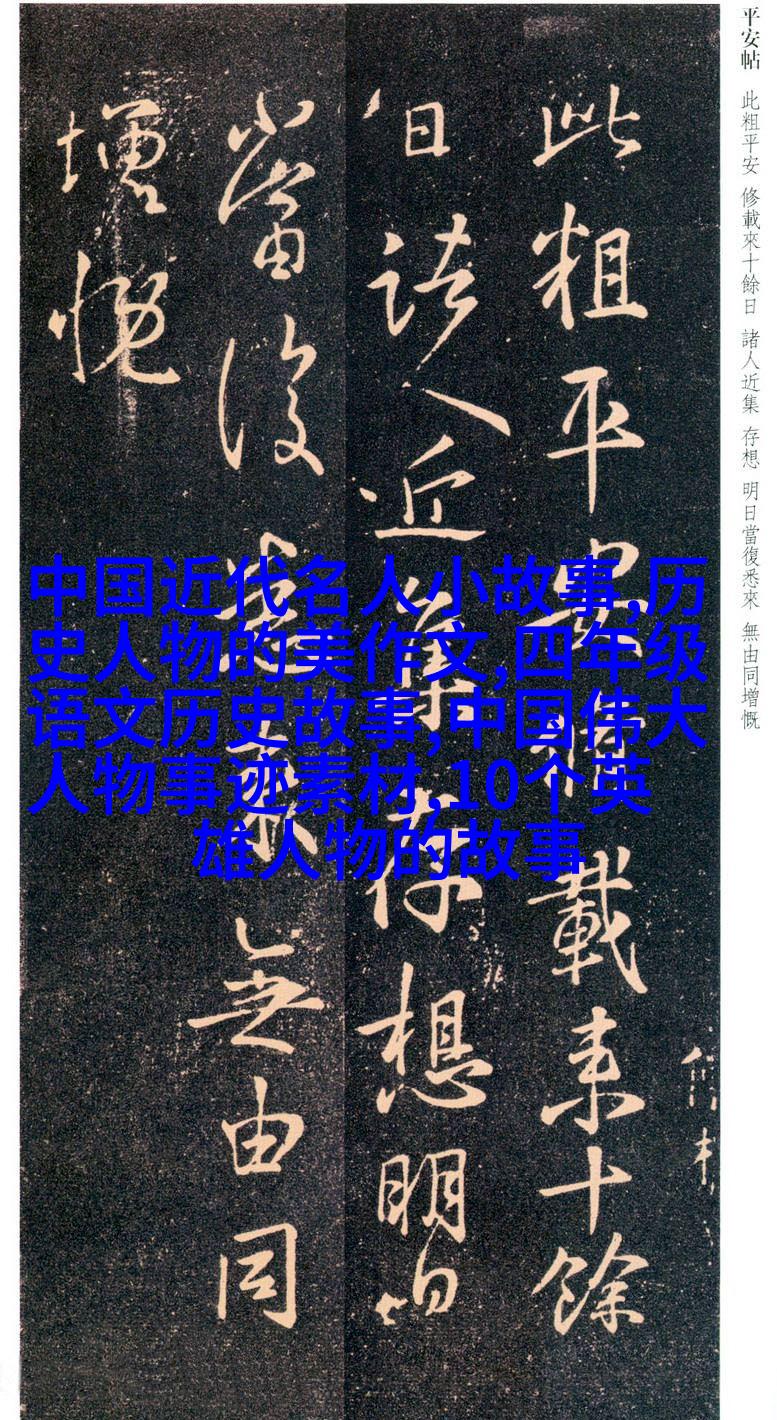 平安帖 此粗平安 修載來十餘日 諸人近集 存想 明日當復悉來 無由同增慨
此粗平安脩載来十餘
日諸人近集存想明日
當復悉来無由同
增慨
中国近代名人小故事,历
史人物的美作文,四年级
语文历史故事,中国伟大
人物事迹素材,10个英
雄人物的故事